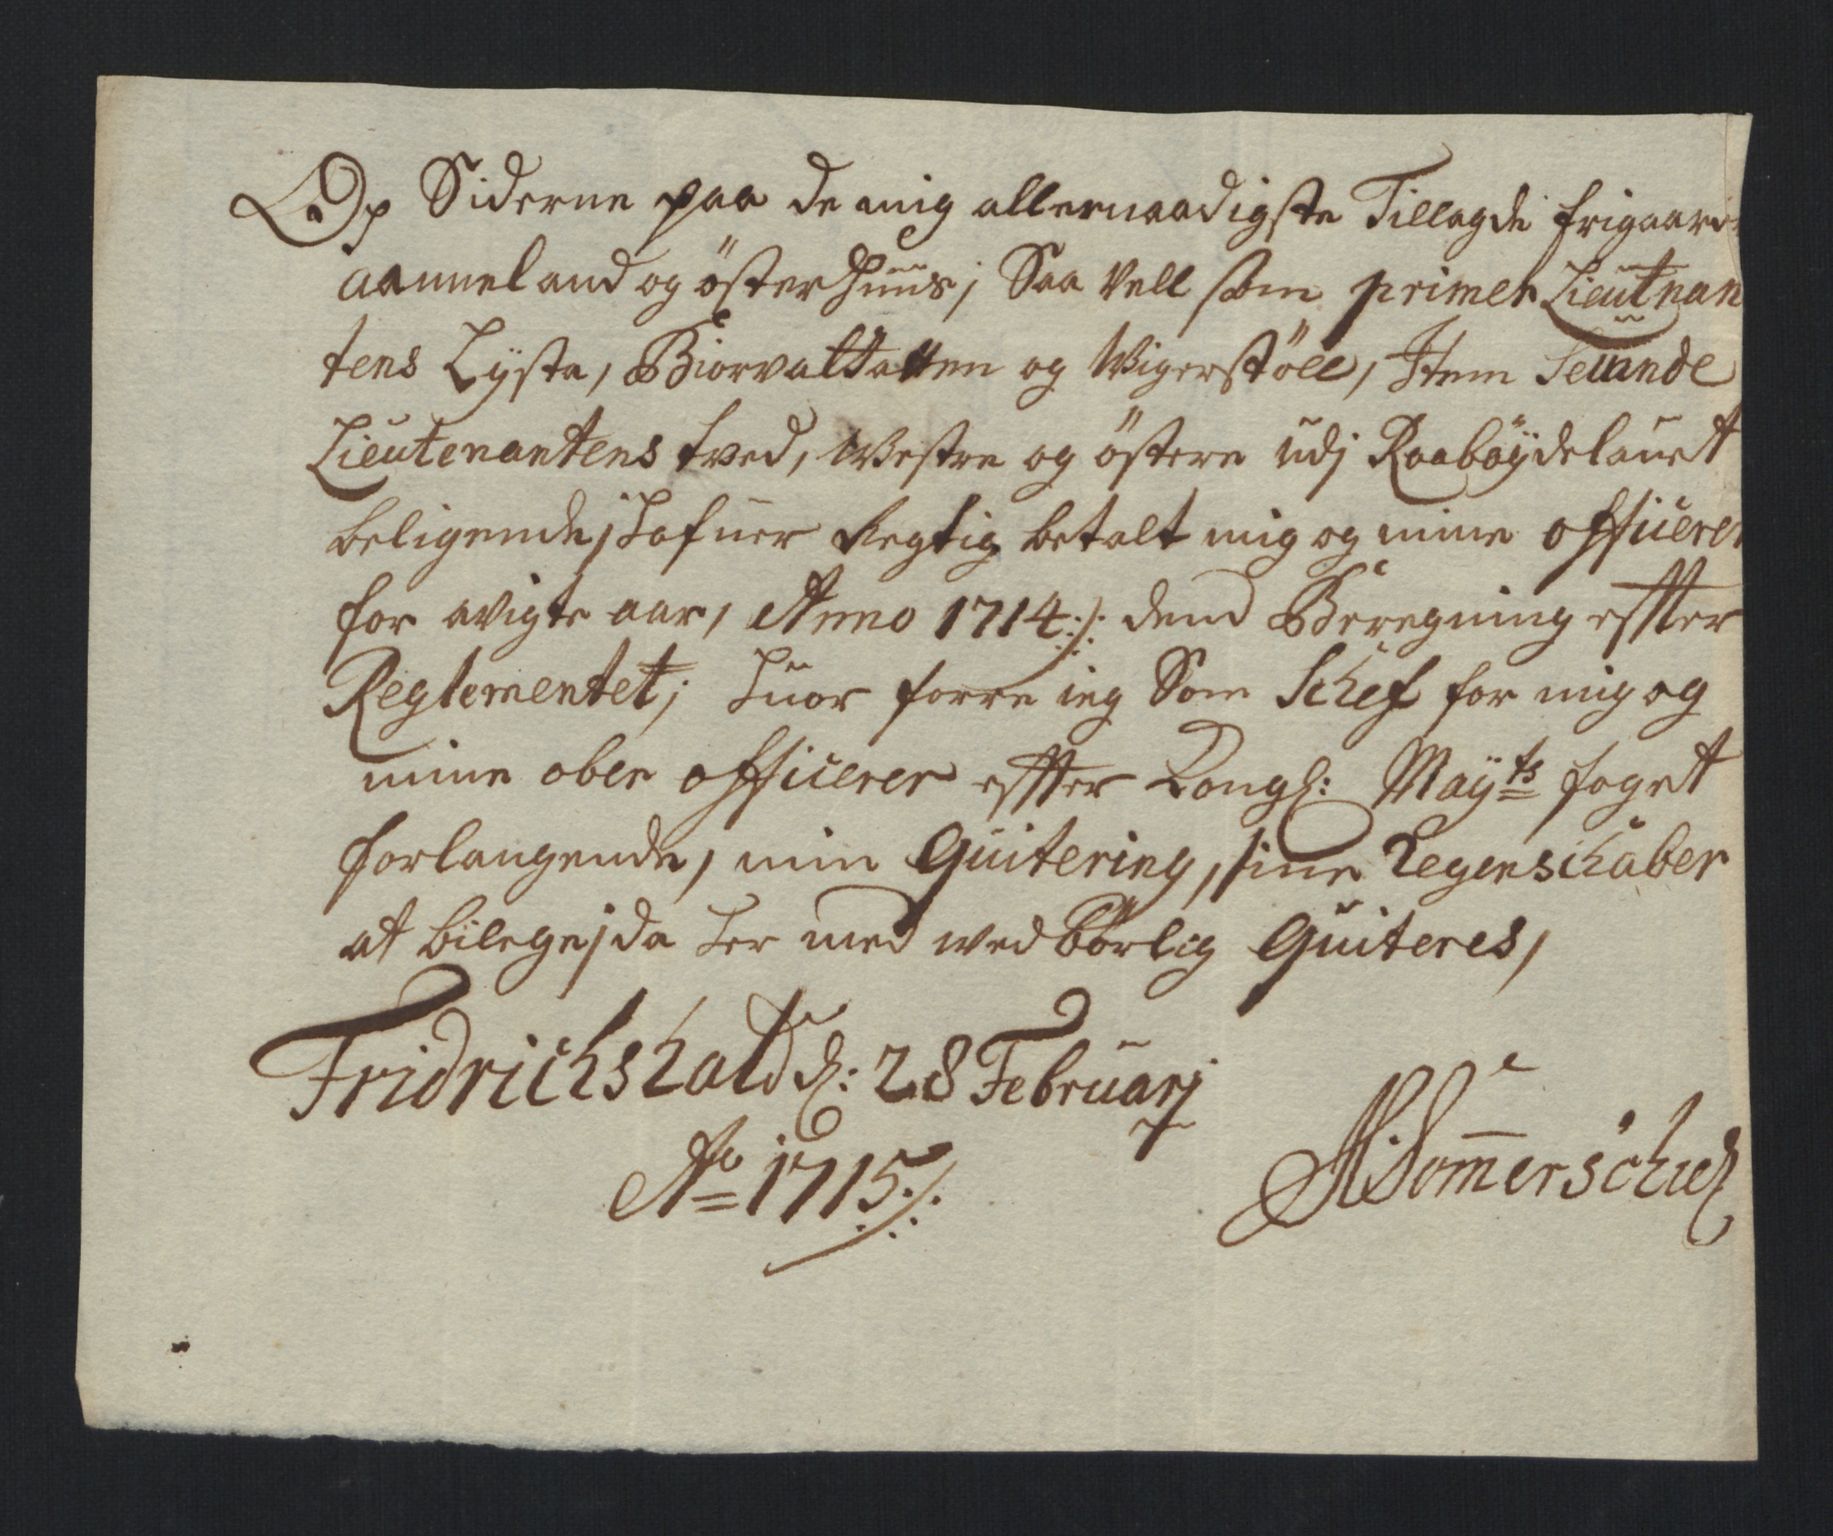 Op Siderne paa de mig allernaadigste Tillagde frigaarde
aanneland og österhuus, Saa Vell som primer Lieutnan
tens Lysta, Biorvaltatten og Wigerstöll, Item Secunde
Lieutenantens tved, Westre og östere udj Raaböydelauet
beligende, hafuer Regtig betalt mig og mine officerer
for avigte aar, Anno 1714 ./. dend Beregning effter
Reglementet; huor forre ieg Som Schef for mig og
mine ober officerer effter Kongl: Mayts fogett
forlangende, min Quitering, sine Regenschaber
at bilege, da her med wedbörlig Quiteres,
Fridrichshald d: 28 Februarj
Ao 1715 ./.
Somerschield